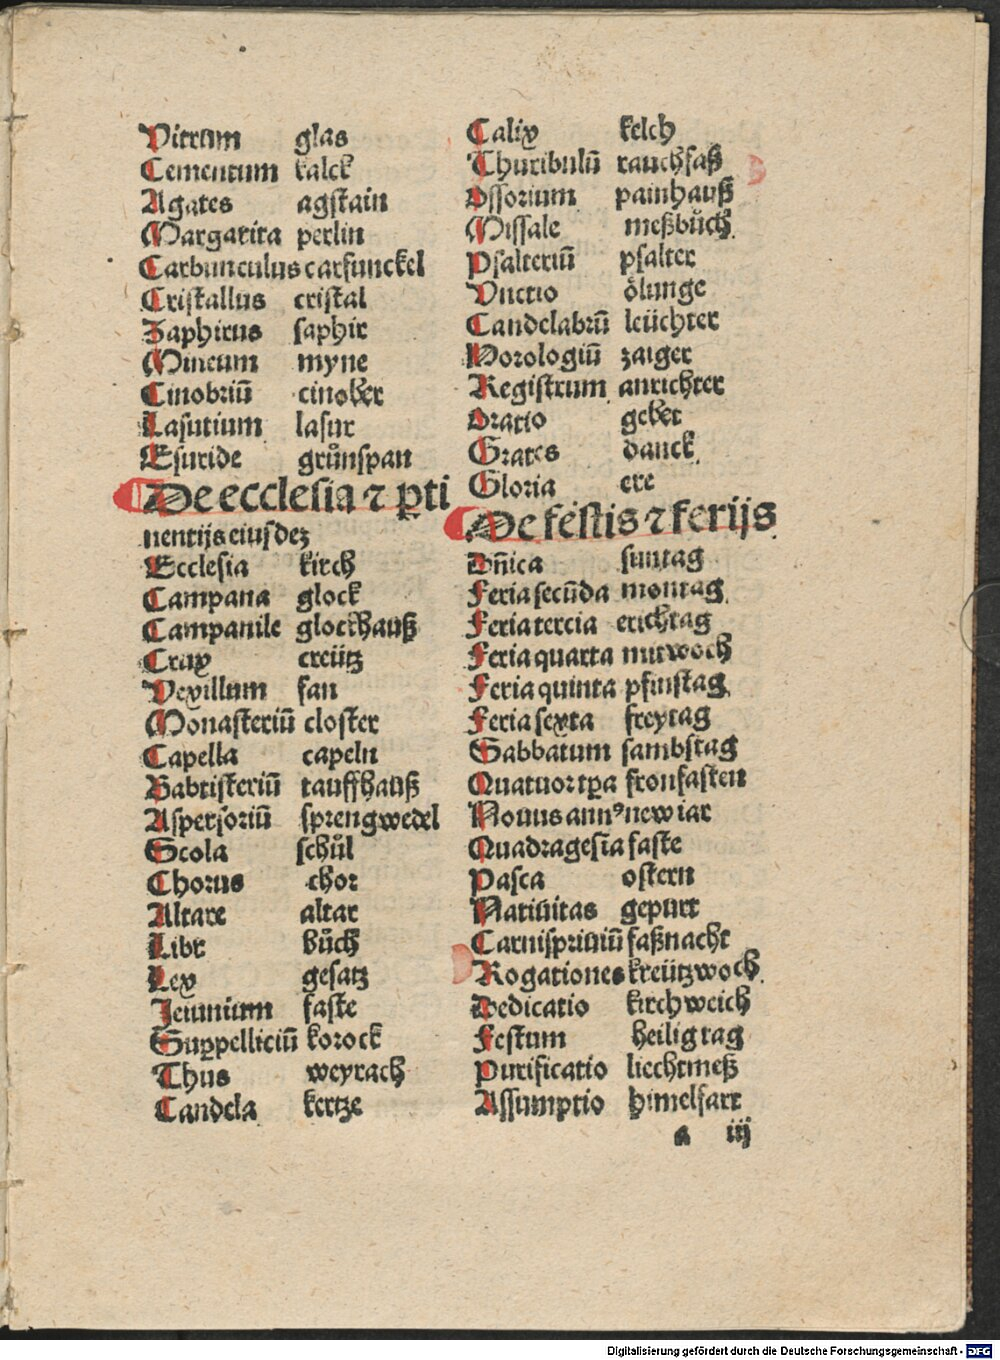 Vitrum glas
Cementum kalck
Agates agstain
Margarita perlin
Carbunculus carfunckel
Cristallus cristal
Zaphirus saphir
Mineum myne
Cinobriū cinober
Lasurium lasur
Esuride grůnspan
De ecclesia ⁊ ꝑti
nentijs eiusdeꝫ
Ecclesia kirch
Campana glock
Campanile glockhauß
Crux creütz
Vexillum fan
Monasteriū closter
Capella capeln
Babtisteriū tauffhauß
Aspersoriū sprengwedel
Scola schůl
Chorus chor
Altare altar
Libr bůch
Lex gesatz
Jeiunium faste
Suppelliciū korock
Thus weyrach
Candela kertze
Calix kelch
Thuribulū rauchfaß
Ossorium painhauß
Missale meßbůch
Psalteriū psalter
Vnctio ölunge
Candelabrū leüchter
Horologiū zaiger
Registrum anrichter
Oratio gebet
Grates danck
Gloria ere
De festis ⁊ ferijs
Dn̄ica suntag
Feria secūda montag
Feria tercia erichtag
Feria quarta mitwoch
Feria quinta pfinstag
Feria sexta freytag
Sabbatum sambstag
Quatuor tꝑa fronfasten
Nouus annꝰ new iar
Quadragesīa faste
Pasca ostern
Natiuitas gepurt
Carnispriuiū faßnacht
Rogationes kreützwoch
Dedicatio kirchweich
Festum heiligtag
Purificatio liechtmeß
Assumptio himelfart
a iij
Digitalisierung gefördert durch die Deutsche Forschungsgemeinschaft - DFG